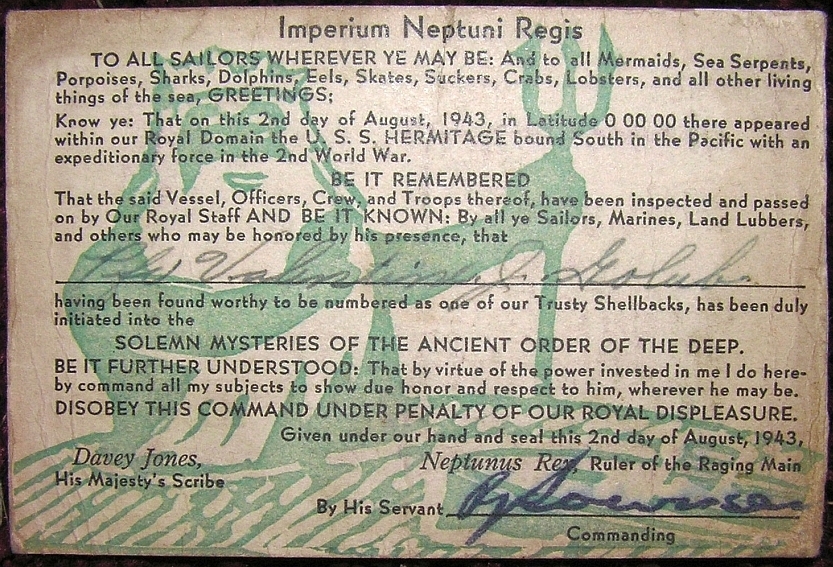 Imperium Neptuni Regis
TO ALL SAILORS WHEREVER YE MAY BE: And to all Mermaids, Sea Serpents,
Porpoises, Sharks, Dolphins, Eels, Skates, Suckers, Crabs, Lobsters, and all other living
things of the sea, GREETINGS;
Know ye: That on this 2nd day of August, 1943, in Latitude 0 00 00 there appeared
within our Royal Domain the U. S. S. HERMITAGE bound South in the Pacific with an
expeditionary force in the 2nd World War.
BE IT REMEMBERED
That the said Vessel, Officers, Crew, and Troops thereof, have been inspected and passed
on by Our Royal Staff AND BE IT KNOWN: By all ye Sailors, Marines, Land Lubbers,
and others who may be honored by his presence, that
Valentine J. Golub
having been found worthy to be numbered as one of our Trusty Shellbacks, has been duly
initiated into the
SOLEMN MYSTERIES OF THE ANCIENT ORDER OF THE DEEP.
BE IT FURTHER UNDERSTOOD: That by virtue of the power invested in me I do here-
by command all my subjects to show due honor and respect to him, wherever he may be.
DISOBEY THIS COMMAND UNDER PENALTY OF OUR ROYAL DISPLEASURE.
Given under our hand and seal this 2nd day of August, 1943,
Davey Jones,
His Majesty's Scribe
Neptunus Rex, Ruler of the Raging Main
By His Servant
Commanding